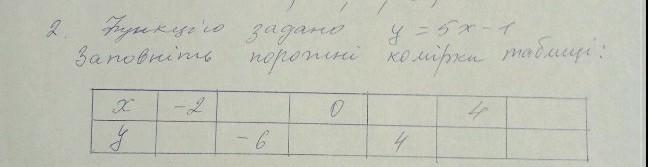 2. Функцію задано y = 5x - 1
Заповніть порожні комірки таблиці:
x -2 0 4
y -6 4